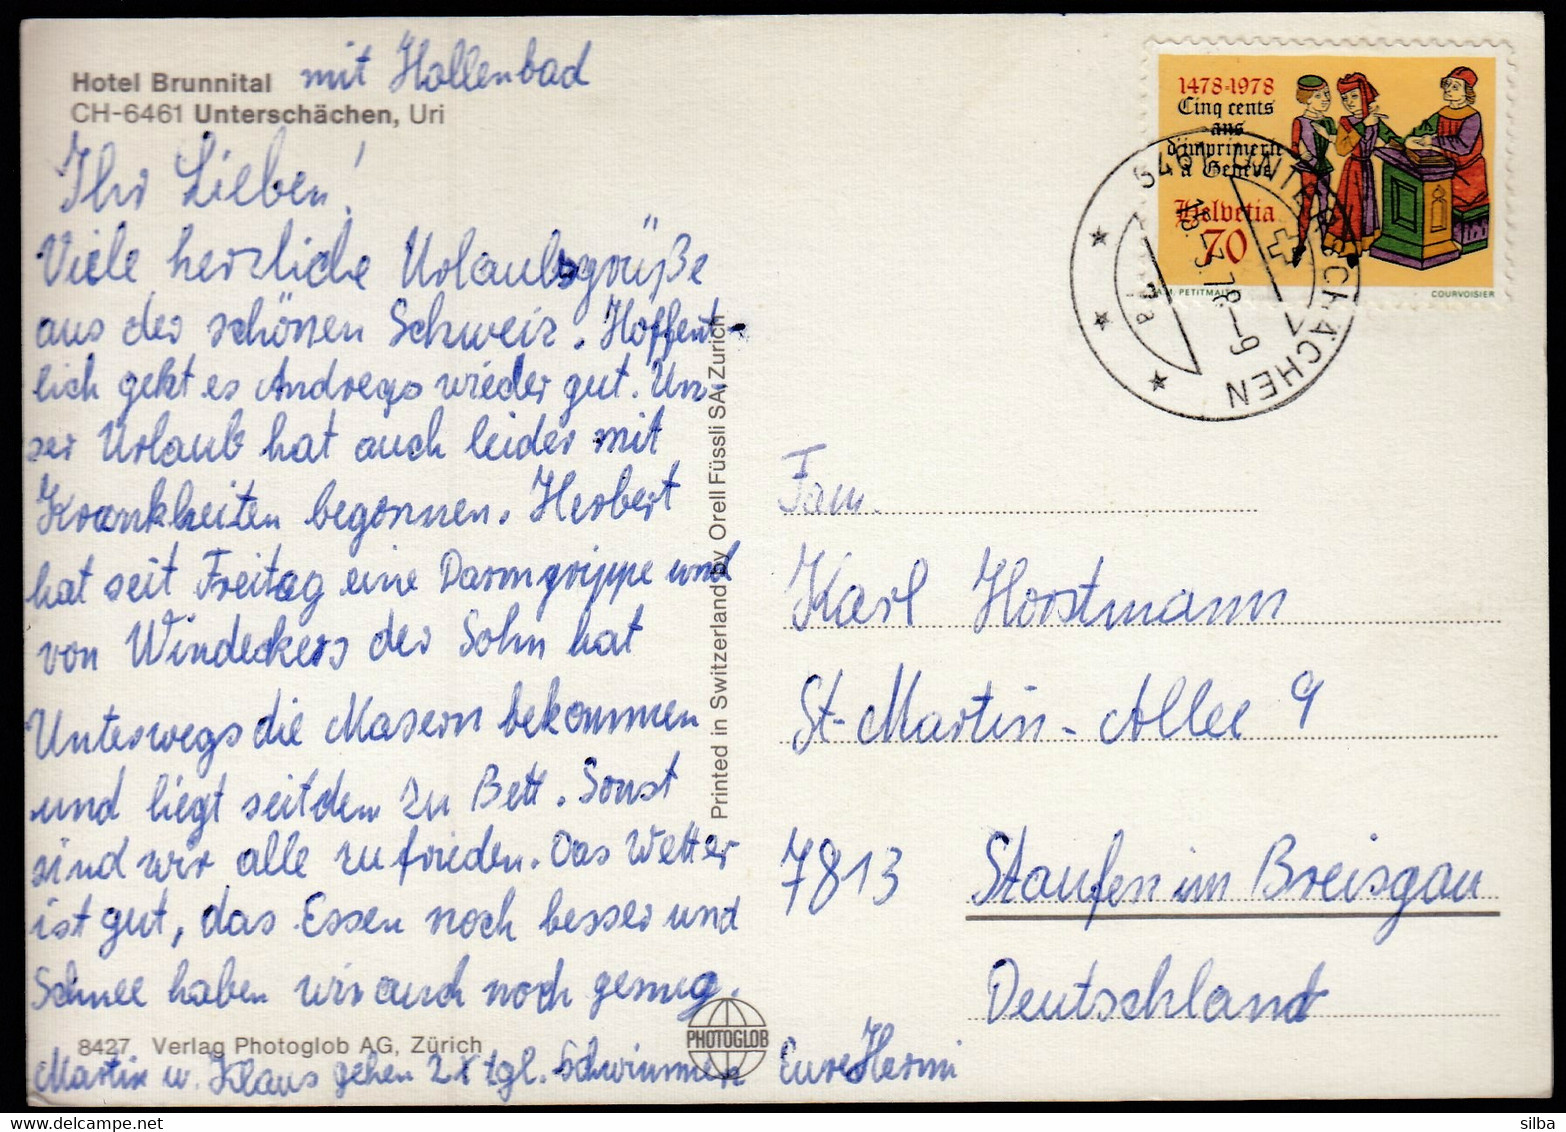 Hotel Brunnital mit Hallenbad
CH-6461 Unterschächen, Uri
Ihr Lieben!
Viele herzliche Urlaubsgrüße
aus der schönen Schweiz. Hoffent-
lich geht es Andreas wieder gut. Un-
ser Urlaub hat auch leider mit
Krankheiten begonnen. Herbert
hat seit Freitag eine Darmgrippe und
von Windeckers der Sohn hat
Unterwegs die Masern bekommen
und liegt seitdem zu Bett. Sonst
sind wir alle zufrieden. Das Wetter
ist gut, das Essen noch besser und
Schnee haben wir auch noch genug.
8427 Verlag Photoglob AG, Zürich
Martin u. Klaus gehen 2x tgl. Schwimmen
Eure Hermi
Printed in Switzerland by Orell Füssli SA, Zürich
PHOTOGLOB
1478-1978
Cinq cents
ans
d'imprimerie
à Genève
Helvetia
70
PETITMAI
COURVOISIER
6461 UNTERSCHÄCHEN
Fam.
Karl Horstmann
St.-Martin-Allee 9
7813 Staufen im Breisgau
Deutschland
silba